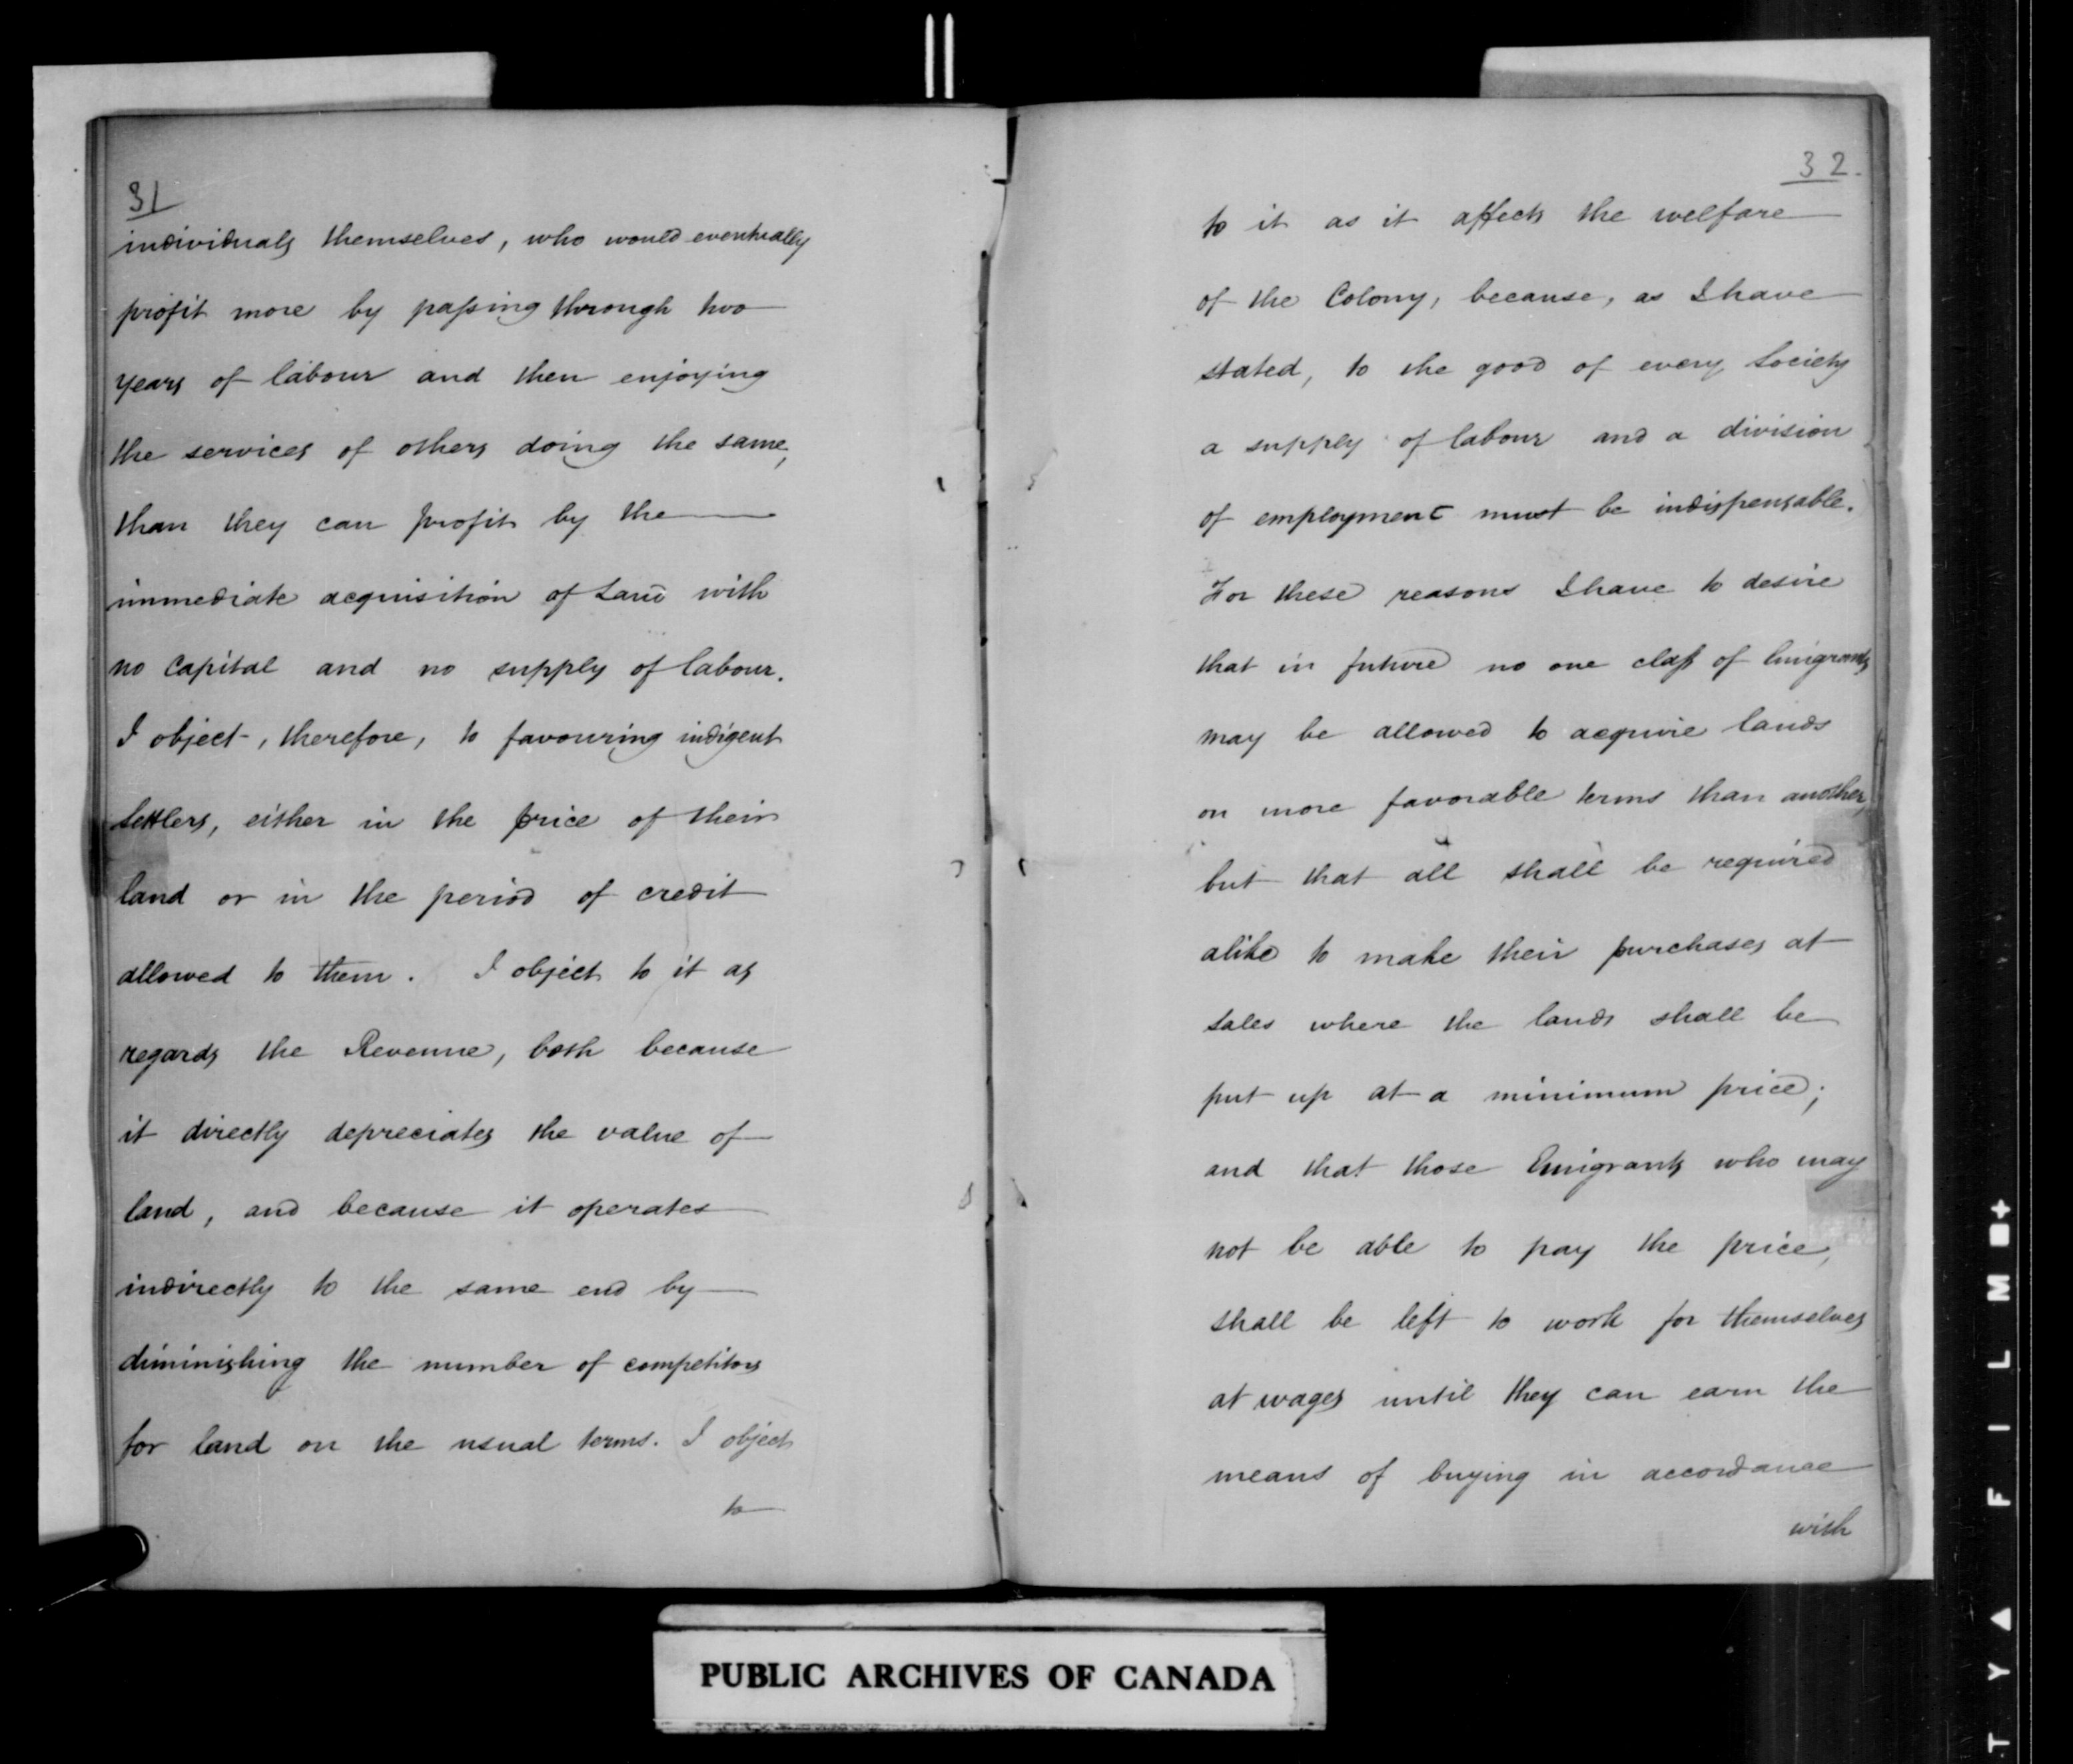 31
individuals themselves, who would eventually
profit more by passing through two
years of labour and then enjoying
the services of others doing the same,
than they can profit by the
immediate acquisition of Land with
no Capital and no supply of labour.
I object, therefore, to favouring indigent
Settlers, either in the price of their
land or in the period of credit
allowed to them. I object to it as
regards the Revenue, both because
it directly depreciates the value of
land, and because it operates
indirectly to the same end by
diminishing the number of competitors
for land on the usual terms. I object
to
32.
to it as it affects the welfare
of the Colony, because, as I have
stated, to the good of every Society
a supply of labour and a division
of employment must be indispensable.
For these reasons I have to desire
that in future no one class of Emigrants
may be allowed to acquire lands
on more favorable terms than another,
but that all shall be required
alike to make their purchases at
sales where the lands shall be
put up at a minimum price;
and that those Emigrants who may
not be able to pay the price,
shall be left to work for themselves
at wages until they can earn the
means of buying in accordance
with
PUBLIC ARCHIVES OF CANADA
T Y ▲ F I L M